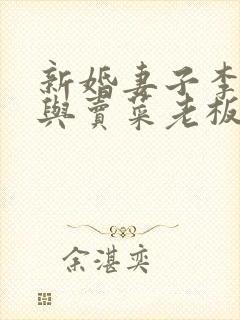 新婚妻子李
與賣菜老板
余湛奕